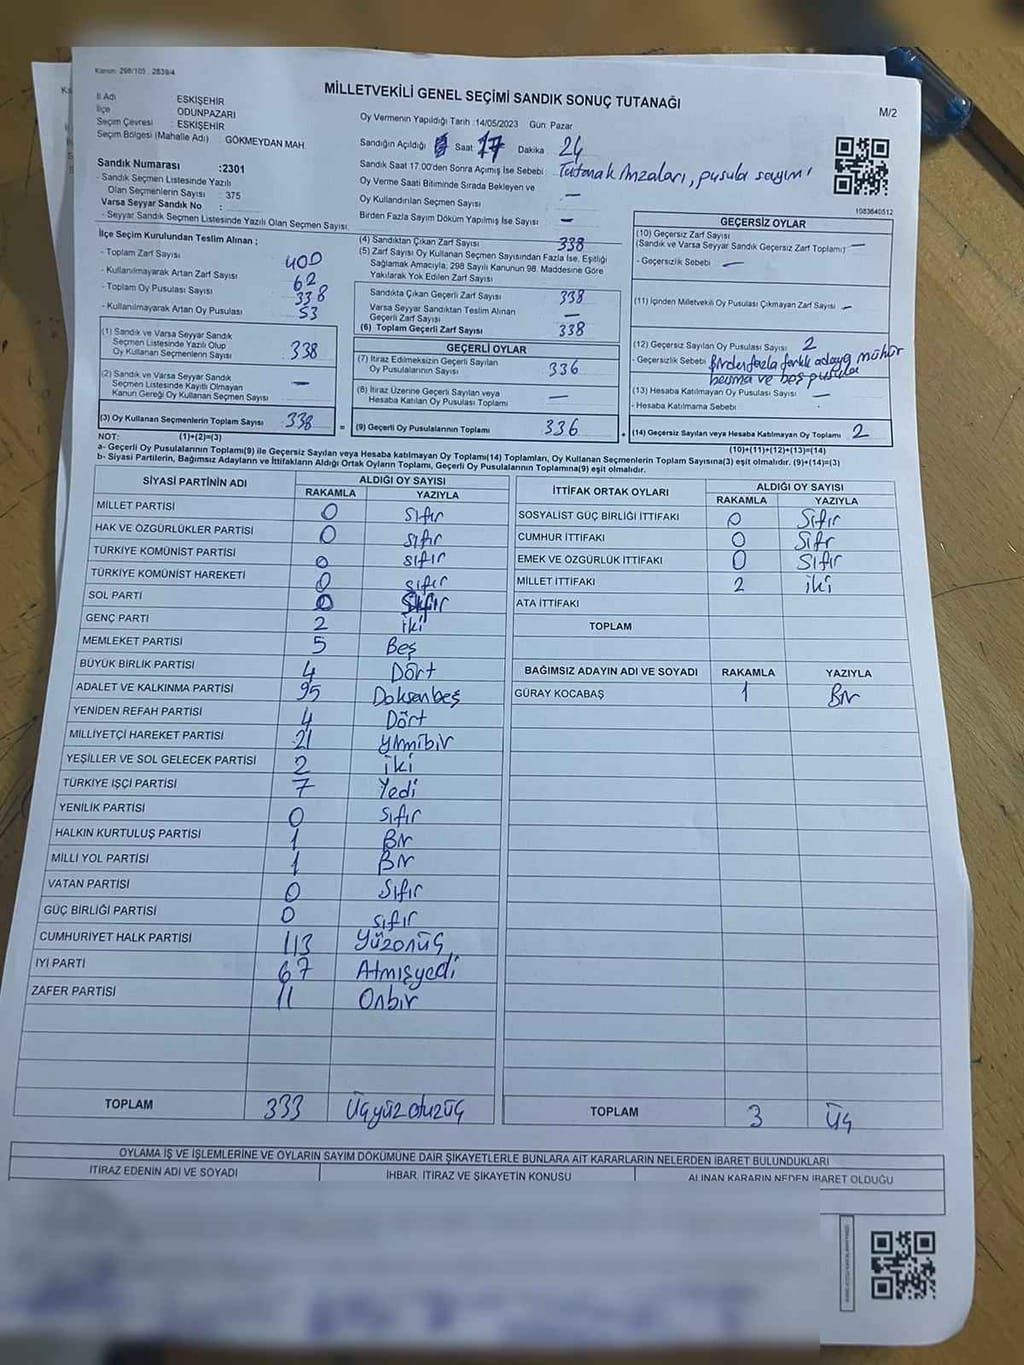 Kanun: 298/105 , 2839/4
MİLLETVEKİLİ GENEL SEÇİMİ SANDIK SONUÇ TUTANAĞI
M/2
İl Adı ESKİŞEHİR
İlçe ODUNPAZARI
Seçim Çevresi : ESKİŞEHİR
Seçim Bölgesi (Mahalle Adı) : GÖKMEYDAN MAH.
Oy Vermenin Yapıldığı Tarih :14/05/2023 Gün: Pazar
Sandığın Açıldığı Saat 17 Dakika 24
Sandık Saat 17.00'den Sonra Açımış İse Sebebi : Tutanak imzaları, pusula sayımı
Oy Verme Saati Bitiminde Sırada Bekleyen ve
Oy Kullandırılan Seçmen Sayısı : —
Birden Fazla Sayım Döküm Yapılmış İse Sayısı : —
1083640512
Sandık Numarası :2301
- Sandık Seçmen Listesinde Yazılı
Olan Seçmenlerin Sayısı : 375
Varsa Seyyar Sandık No :
- Seyyar Sandık Seçmen Listesinde Yazılı Olan Seçmen Sayısı
İlçe Seçim Kurulundan Teslim Alınan ;
- Toplam Zarf Sayısı 400
- Kullanılmayarak Artan Zarf Sayısı 62
- Toplam Oy Pusulası Sayısı 338
- Kullanılmayarak Artan Oy Pusulası 53
(1) Sandık ve Varsa Seyyar Sandık
Seçmen Listesinde Yazılı Olup
Oy Kullanan Seçmenlerin Sayısı 338
(2) Sandık ve Varsa Seyyar Sandık
Seçmen Listesinde Kayıtlı Olmayan
Kanun Gereği Oy Kullanan Seçmen Sayısı —
(3) Oy Kullanan Seçmenlerin Toplam Sayısı 338
(4) Sandıktan Çıkan Zarf Sayısı 338
(5) Zarf Sayısı Oy Kullanan Seçmen Sayısından Fazla İse, Eşitliği
Sağlamak Amacıyla, 298 Sayılı Kanunun 98. Maddesine Göre
Yakılarak Yok Edilen Zarf Sayısı
Sandıkta Çıkan Geçerli Zarf Sayısı 338
Varsa Seyyar Sandıktan Teslim Alınan
Geçerli Zarf Sayısı —
(6) Toplam Geçerli Zarf Sayısı 338
GEÇERLİ OYLAR
(7) İtiraz Edilmeksizin Geçerli Sayılan
Oy Pusulalarının Sayısı 336
(8) İtiraz Üzerine Geçerli Sayılan veya
Hesaba Katılan Oy Pusulası Toplamı —
= (9) Geçerli Oy Pusulalarının Toplamı 336 +
GEÇERSİZ OYLAR
(10) Geçersiz Zarf Sayısı
(Sandık ve Varsa Seyyar Sandık Geçersiz Zarf Toplamı) —
- Geçersizlik Sebebi : —
(11) İçinden Milletvekili Oy Pusulası Çıkmayan Zarf Sayısı : —
(12) Geçersiz Sayılan Oy Pusulası Sayısı : 2
- Geçersizlik Sebebi : Birden fazla farklı adaya mühür
basma ve boş pusula
(13) Hesaba Katılmayan Oy Pusulası Sayısı : —
- Hesaba Katılmama Sebebi :
(14) Geçersiz Sayılan veya Hesaba Katılmayan Oy Toplamı 2
NOT: (1)+(2)=(3) (10)+(11)+(12)+(13)=(14)
a- Geçerli Oy Pusulalarının Toplamı(9) ile Geçersiz Sayılan veya Hesaba katılmayan Oy Toplamı(14) Toplamları, Oy Kullanan Seçmenlerin Toplam Sayısına(3) eşit olmalıdır. (9)+(14)=(3)
b- Siyasi Partilerin, Bağımsız Adayların ve İttifakların Aldığı Ortak Oyların Toplamı, Geçerli Oy Pusulalarının Toplamına(9) eşit olmalıdır.
SİYASİ PARTİNİN ADI ALDIĞI OY SAYISI
RAKAMLA YAZIYLA
MİLLET PARTİSİ 0 sıfır
HAK VE ÖZGÜRLÜKLER PARTİSİ 0 sıfır
TÜRKİYE KOMÜNİST PARTİSİ 0 sıfır
TÜRKİYE KOMÜNİST HAREKETİ 0 sıfır
SOL PARTİ 0 Sıfır
GENÇ PARTİ 2 iki
MEMLEKET PARTİSİ 5 Beş
BÜYÜK BİRLİK PARTİSİ 4 Dört
ADALET VE KALKINMA PARTİSİ 95 Doksanbeş
YENİDEN REFAH PARTİSİ 4 Dört
MİLLİYETÇİ HAREKET PARTİSİ 21 yirmibir
YEŞİLLER VE SOL GELECEK PARTİSİ 2 iki
TÜRKİYE İŞÇİ PARTİSİ 7 Yedi
YENİLİK PARTİSİ 0 sıfır
HALKIN KURTULUŞ PARTİSİ 1 Bir
MİLLİ YOL PARTİSİ 1 Bir
VATAN PARTİSİ 0 Sıfır
GÜÇ BİRLİĞİ PARTİSİ 0 sıfır
CUMHURİYET HALK PARTİSİ 113 Yüzonüç
İYİ PARTİ 67 Atmışyedi
ZAFER PARTİSİ 11 Onbir
TOPLAM 333 Üçyüz otuzüç
İTTİFAK ORTAK OYLARI ALDIĞI OY SAYISI
RAKAMLA YAZIYLA
SOSYALİST GÜÇ BİRLİĞİ İTTİFAKI 0 Sıfır
CUMHUR İTTİFAKI 0 Sıfr
EMEK VE ÖZGÜRLÜK İTTİFAKI 0 Sıfır
MİLLET İTTİFAKI 2 iki
ATA İTTİFAKI
TOPLAM
BAĞIMSIZ ADAYIN ADI VE SOYADI RAKAMLA YAZIYLA
GÜRAY KOCABAŞ 1 Bir
TOPLAM 3 üç
OYLAMA İŞ VE İŞLEMLERİNE VE OYLARIN SAYIM DÖKÜMÜNE DAİR ŞİKAYETLERLE BUNLARA AİT KARARLARIN NELERDEN İBARET BULUNDUKLARI
İTİRAZ EDENİN ADI VE SOYADI İHBAR, İTİRAZ VE ŞİKAYETİN KONUSU ALINAN KARARIN NEDEN İBARET OLDUĞU